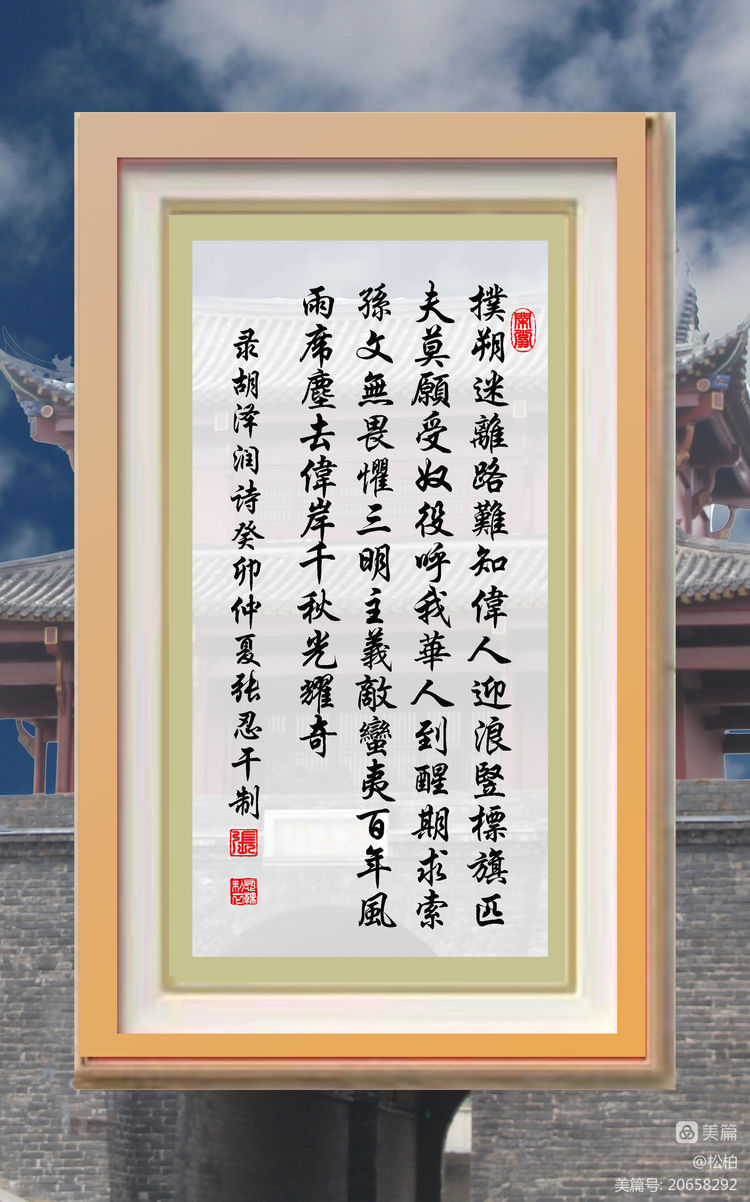 撲朔迷離路難知偉人迎浪豎標旗匹
夫莫願受奴役呼我華人到醒期求索
孫文無畏懼三明主義敵蠻夷百年風
雨席塵去偉岸千秋光耀奇
录胡泽润诗癸卯仲夏张忍干制
張
美篇
@松柏
美篇号: 20658292